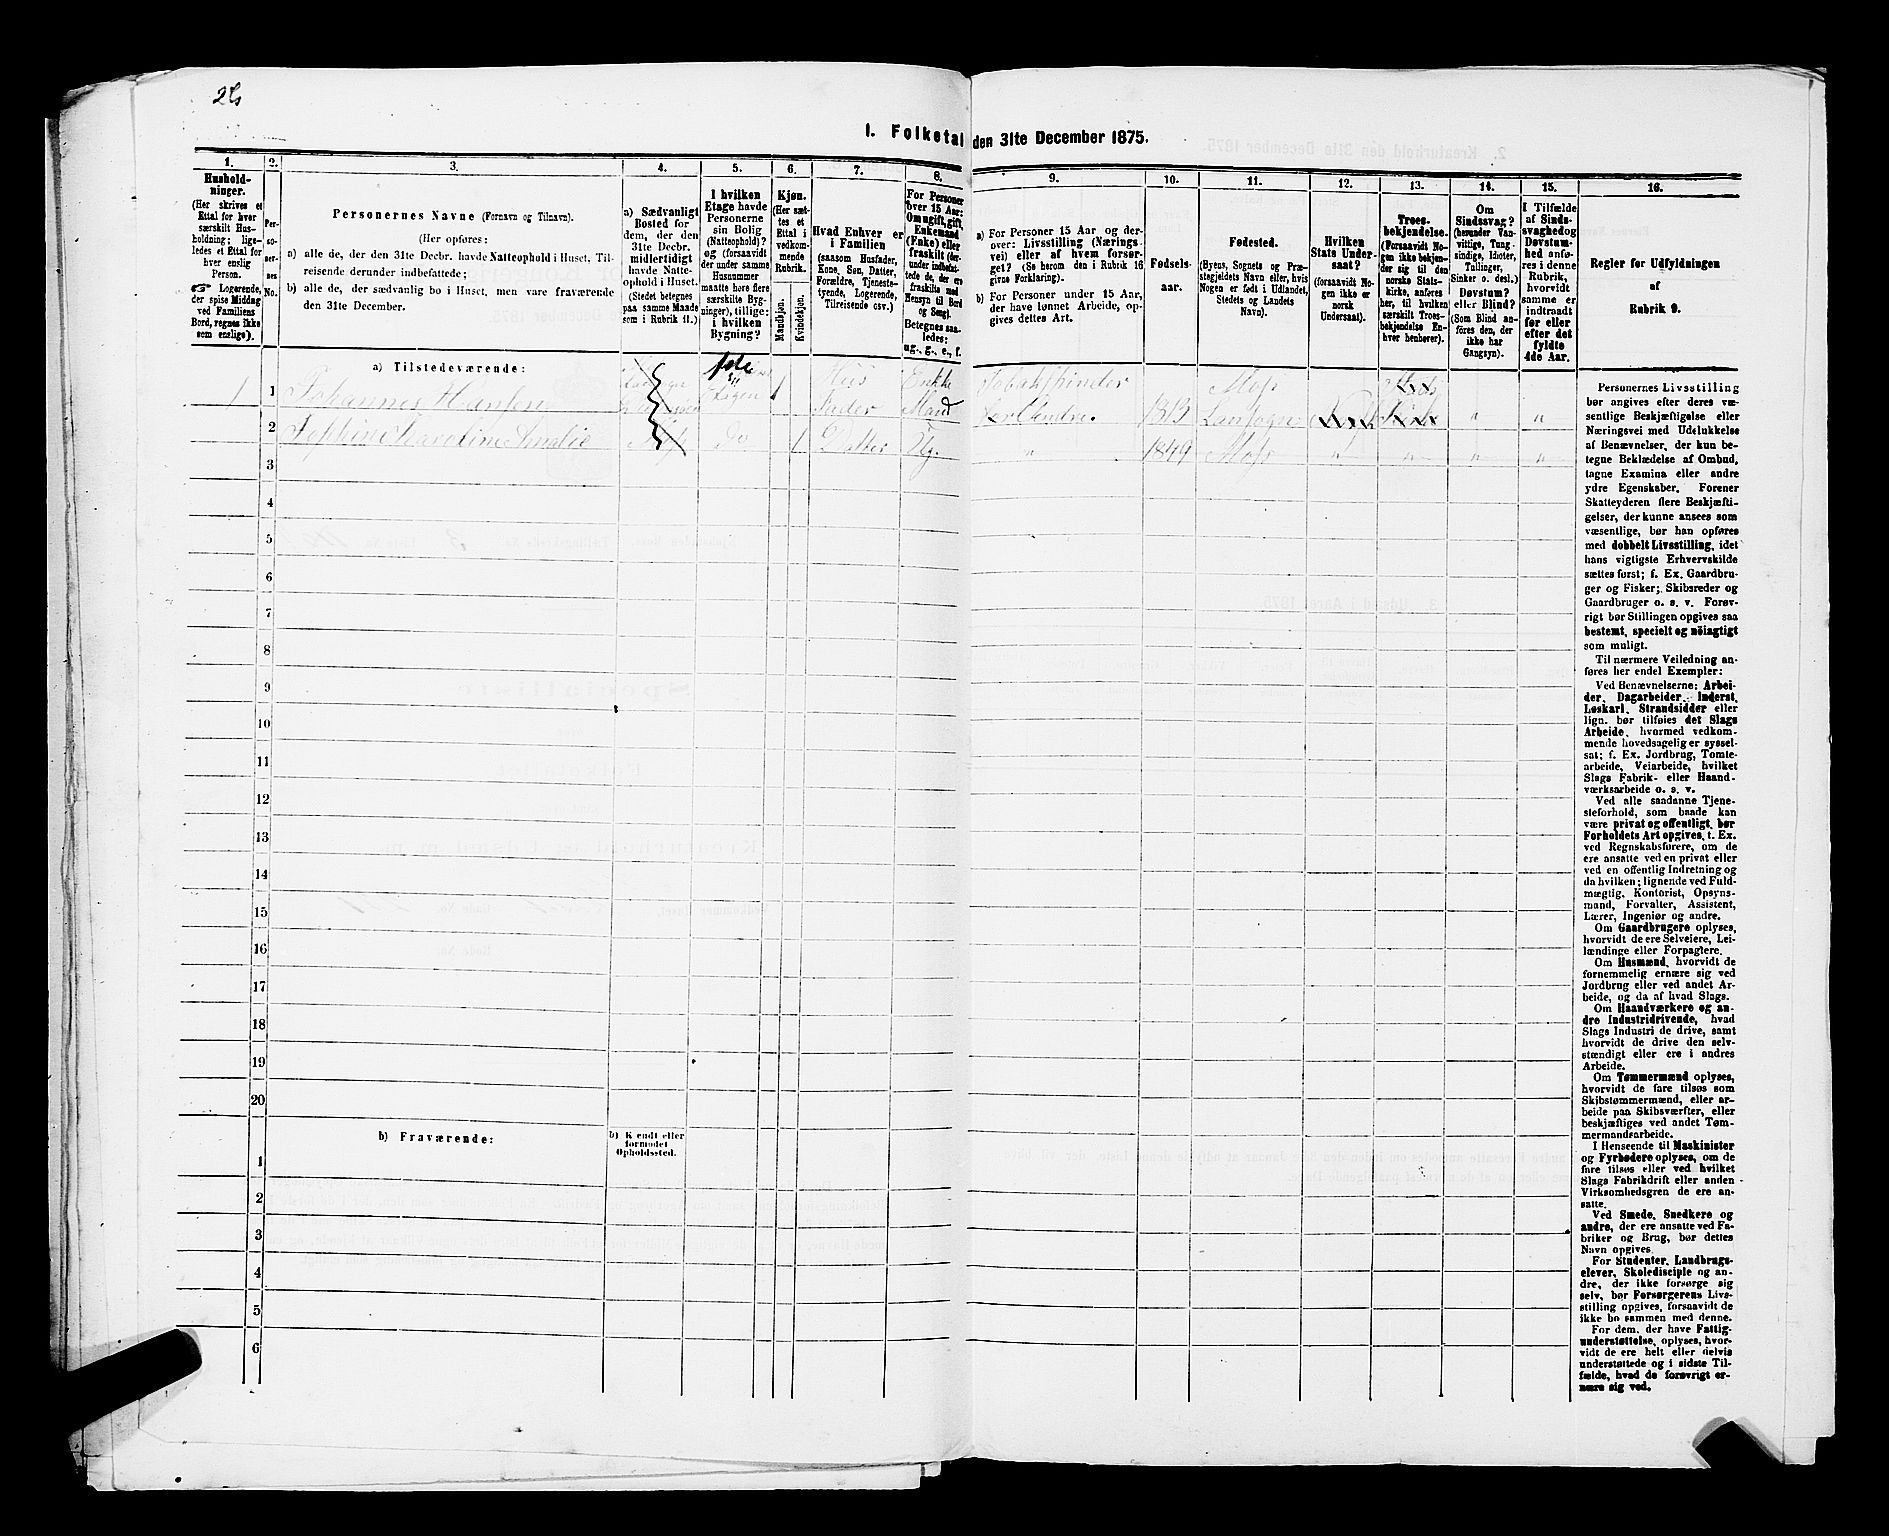 26
I. Folketal den 31te December 1875.
1.
Hushold-
ninger.
(Her skrives et
Ettal for hver
særskilt Hus-
holdning; lige-
ledes et Ettal for
hver enslig
Person.
Logerende,
der spise Middag
ved Familiens
Bord, regnes ikke
som enslige).
2.
Per-
so-
ner-
nes
No.
3.
Personernes Navne (Fornavn og Tilnavn).
(Her opføres:
a) alle de, der den 31te Decbr. havde Natteophold i Huset, Til-
reisende derunder indbefattede;
b) alle de, der sædvanlig bo i Huset, men vare fraværende
den 31te December.
4.
a) Sædvanligt
Bosted for
dem, der den
31te Decbr.
midlertidigt
havde Natte-
ophold i Huset.
(Stedet betegnes
paa samme Maade
som i Rubrik 11.)
5.
I hvilken
Etage havde
Personerne
sin Bolig
(Natteophold)?
og (forsaavidt
der under samme
Husnummer
maatte høre flere
særskilte Byg-
ninger), tillige:
i hvilken
Bygning?
6.
Kjøn.
(Her sæt-
tes et
Ettal i
vedkom-
mende
Rubrik.
Mandkjøn.
Kvindekjøn.
7.
Hvad Enhver er
i Familien
(saasom Husfader,
Kone, Søn, Datter,
Forældre, Tjeneste-
tyende, Logerende,
Tilreisende osv.)
8.
For Personer
over 15 Aar:
Om ugift, gift,
Enkemand
(Enke) eller
fraskilt (der-
under indbefat-
tede de, der ere
fraskilte med
Hensyn til Bord
og Seng).
Betegnes saa-
ledes:
ug., g., e., f.
9.
a) For Personer 15 Aar og der-
over: Livsstilling (Nærings-
vei) eller af hvem forsør-
get? (Se herom den i Rubrik 16
givne Forklaring).
b) For Personer under 15 Aar,
der have lønnet Arbeide, op-
gives dettes Art.
10.
Fødsels-
aar.
11.
Fødested.
(Byens, Sognets og Præ-
stegjeldets Navn eller, hvis
Nogen er født i Udlandet,
Stedets og Landets
Navn).
12.
Hvilken
Stats Under-
saat?
(forsaavidt No-
gen ikke er
norsk
Undersaat).
13.
Troes-
bekjendelse.
(Forsaavidt No-
gen ikke bekjen-
der sig til den
norske Stats-
kirke, anføres
her, til hvilken
særskilt Troes-
bekjendelse En-
hver henhører).
14.
Om
Sindssvag?
(herunder Van-
vittige, Tung-
sindige, Idioter,
Tullinger,
Sinker o. desl.)
Døvstum?
eller Blind?
(Som Blind an-
føres den, der
ikke har
Gangsyn).
15.
I Tilfælde
af Sinds-
svaghed og
Døvstum-
hed anfø-
res i denne
Rubrik,
hvorvidt
samme er
indtraadt
før eller
efter det
fyldte
4de Aar.
16.
Regler for Udfyldningen
af
Rubrik 9.
a) Tilstedeværende:
1 1 Johannes Hansen 1ste Etagen 1 Hus Fader Enke Mand Tobakspinder 1813 Moss Landsogn " "
2 Josephine Karoline Amalie do 1 Datter Ug. " 1849 Moss " " " "
3
4
5
6
7
8
9
10
11
12
13
14
15
16
17
18
19
20
b) Fraværende:
b) Kjendt eller
formodet
Opholdssted.
1
2
3
4
5
6
Personernes Livsstilling
bør angives efter deres væ-
sentlige Beskjæftigelse eller
Næringsvei med Udelukkelse
af Benævnelser, der kun be-
tegne Beklædelse af Ombud,
tagne Examina eller andre
ydre Egenskaber. Forener
Skatteyderen flere Beskjæfti-
gelser, der kunne ansees som
væsentlige, bør han opføres
med dobbelt Livsstilling, idet
hans vigtigste Erhvervskilde
sættes først; f. Ex. Gaardbru-
ger og Fisker; Skibsreder og
Gaardbruger o. s. v. Forøv-
rigt bør Stillingen opgives saa
bestemt, specielt og nøiagtigt
som muligt.
Til nærmere Veiledning an-
føres her endel Exempler:
Ved Benævnelserne: Arbei-
der, Dagarbeider, Inderst,
Løskarl, Strandsidder eller
lign. bør tilføies det Slags
Arbeide, hvormed vedkom-
mende hovedsagelig er syssel-
sat; f. Ex. Jordbrug, Tomte-
arbeide, Veiarbeide, hvilket
Slags Fabrik- eller Haand-
værksarbeide o. s. v.
Ved alle saadanne Tjene-
steforhold, som baade kan
være privat og offentligt, bør
Forholdets Art opgives, t. Ex.
ved Regnskabsførere, om de
ere ansatte ved en privat eller
ved en offentlig Indretning og
da hvilken; lignende ved Fuld-
mægtig, Kontorist, Opsyns-
mand, Forvalter, Assistent,
Lærer, Ingeniør og andre.
Om Gaardbrugere oplyses,
hvorvidt de ere Selveiere, Lei-
lændinge eller Forpagtere.
Om Husmænd, hvorvidt de
fornemmelig ernære sig ved
Jordbrug eller ved andet Ar-
beide, og da af hvad Slags.
Om Haandværkere og an-
dre Industridrivende, hvad
Slags Industri de drive, samt
hvorvidt de drive den selv-
stændigt eller ere i andres
Arbeide.
Om Tømmermænd oplyses,
hvorvidt de fare tilsøs som
Skibstømmermænd, eller ar-
beide paa Skibsværfter, eller
beskjæftiges ved andet Tøm-
mermandsarbeide.
I Henseende til Maskinister
og Fyrbødere oplyses, om de
fare tilsøs eller ved hvilket
Slags Fabrikdrift eller anden
Virksomhedsgren de ere an-
satte.
Ved Smede, Snedkere og
andre, der ere ansatte ved Fa-
briker og Brug, bør dettes
Navn opgives.
For Studenter, Landbrugs-
elever, Skoledisciple og an-
dre, der ikke forsørge sig
selv, bør Forsørgerens Livs-
stilling opgives, forsaavidt de
ikke bo sammen med denne.
For dem, der have Fattig-
understøttelse, oplyses, hvor-
vidt de ere helt eller delvis
understøttede og i sidste Til-
fælde, hvad de forøvrigt er-
nære sig ved.